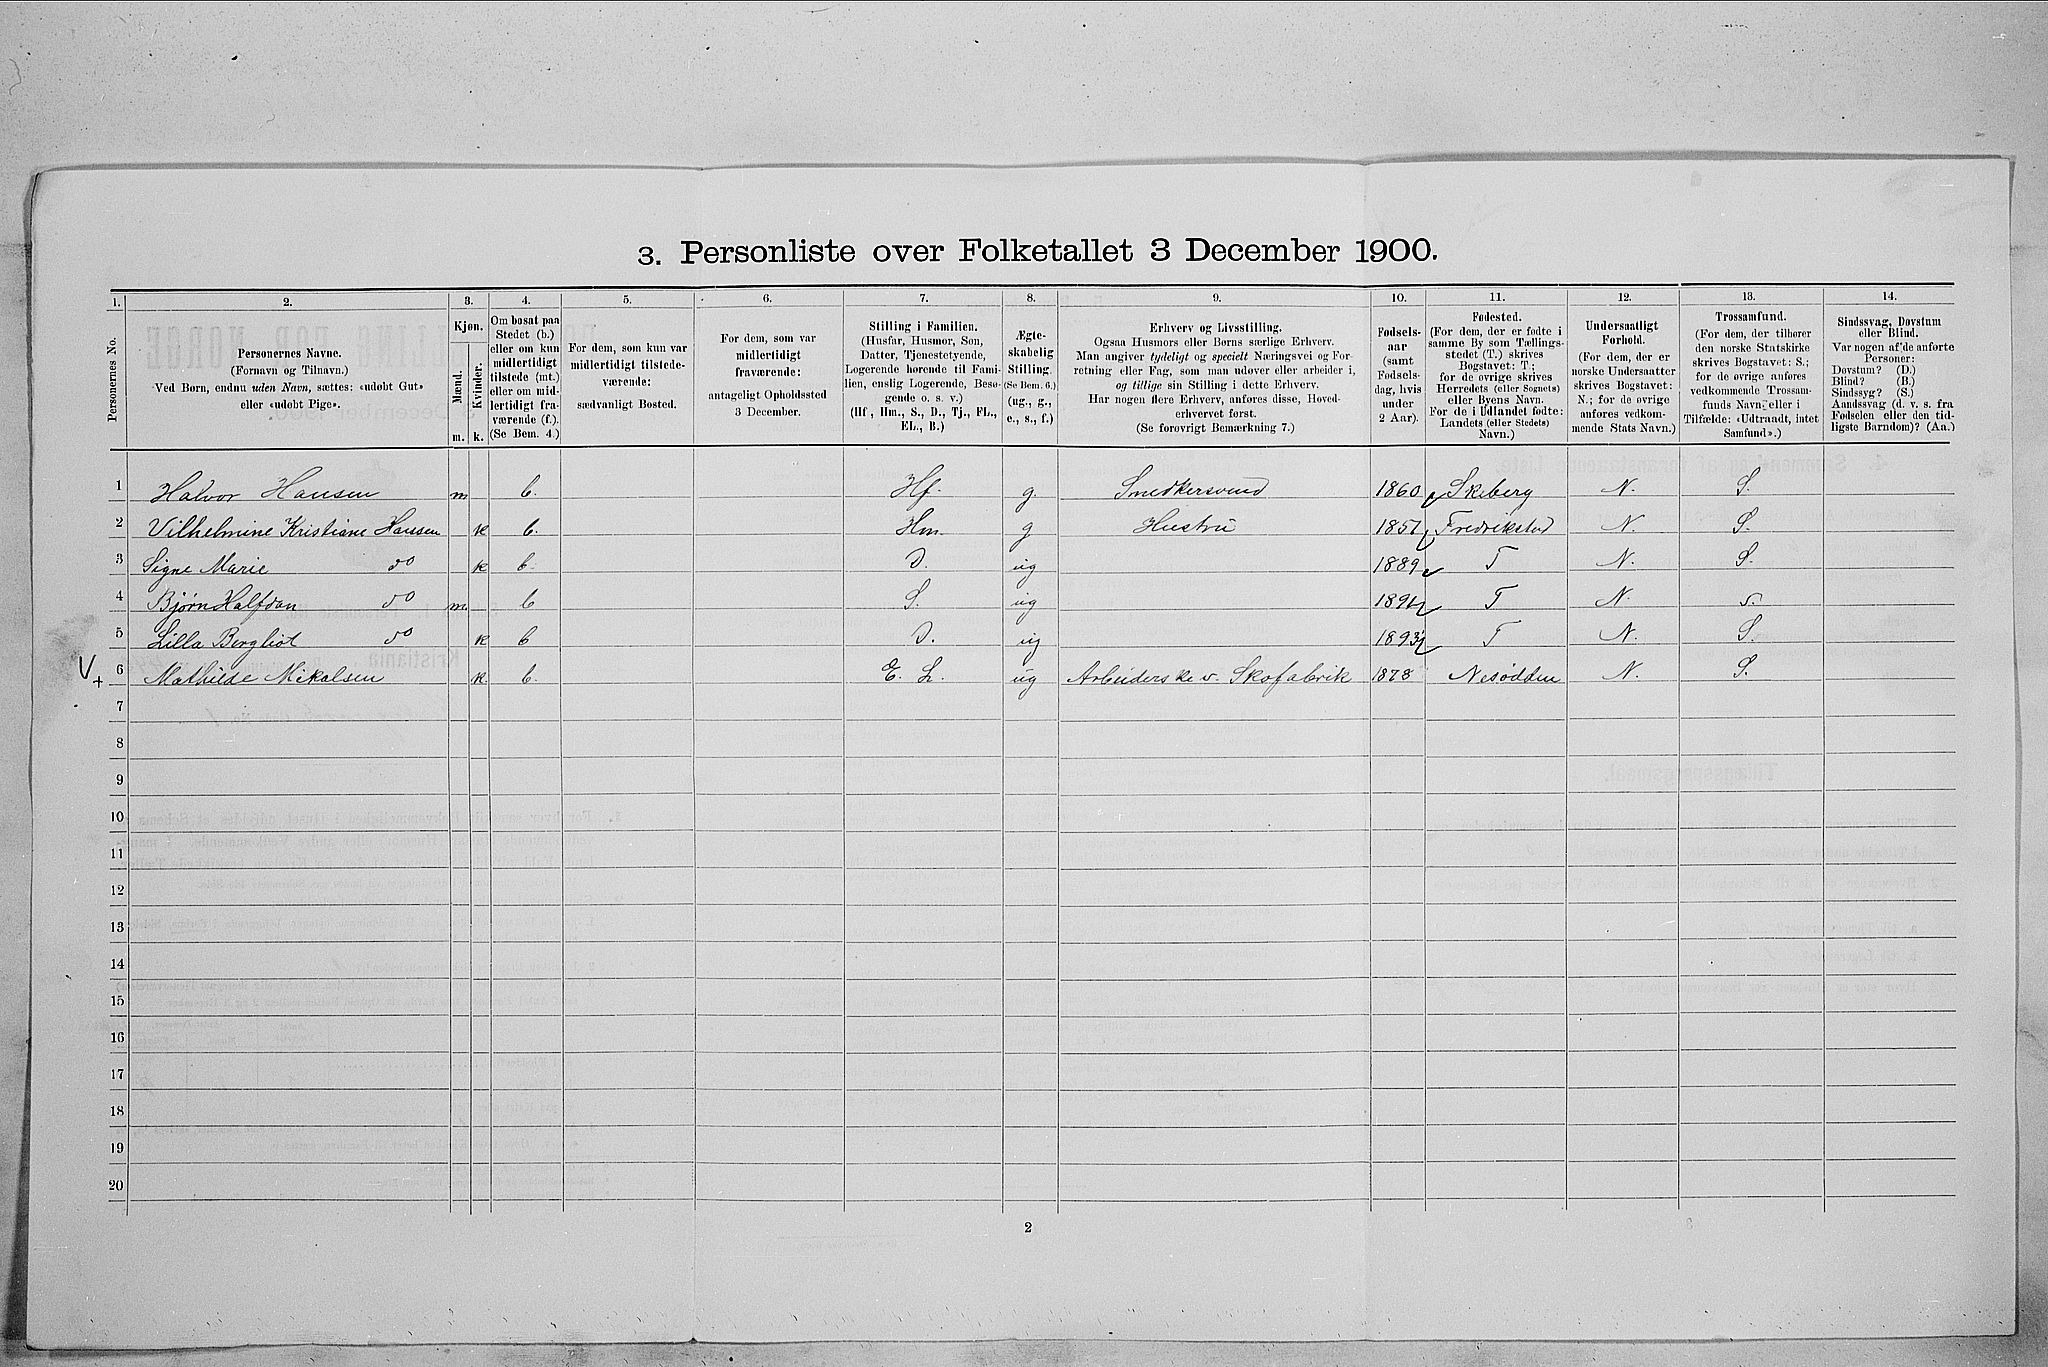 3. Personliste over Folketallet 3 December 1900.
1. 2. 3. 4. 5. 6. 7. 8. 9. 10. 11. 12. 13. 14.
Personernes No.
Personernes Navne.
(Fornavn og Tilnavn.)
Ved Børn, endnu uden Navn, sættes: «udøbt Gut»
eller «udøbt Pige».
Kjøn.
Mænd.
Kvinder.
m. k.
Om bosat paa
Stedet (b.)
eller om kun
midlertidigt
tilstede (mt.)
eller om mid-
lertidigt fra-
værende (f.).
(Se Bem. 4.)
For dem, som kun var
midlertidigt tilstede-
værende:
sædvanligt Bosted.
For dem, som var
midlertidigt
fraværende:
antageligt Opholdssted
3 December.
Stilling i Familien.
(Husfar, Husmor, Søn,
Datter, Tjenestetyende,
Logerende hørende til Fami-
lien, enslig Logerende, Besø-
gende o. s. v.)
(Hf., Hm., S., D., Tj., FL.,
EL., B.)
Ægte-
skabelig
Stilling.
(Se Bem. 6.)
(ug., g.,
e., s., f.)
Erhverv og Livsstilling.
Ogsaa Husmors eller Børns særlige Erhverv.
Man angiver tydeligt og specielt Næringsvei og For-
retning eller Fag, som man udøver eller arbeider i,
og tillige sin Stilling i dette Erhverv.
Har nogen flere Erhverv, anføres disse, Hoved-
erhvervet først.
(Se forøvrigt Bemærkning 7.)
Fødsels-
aar
(samt
Fødsels-
dag, hvis
under
2 Aar).
Fødested.
(For dem, der er fødte i
samme By som Tællings-
stedet (T.) skrives
Bogstavet: T.;
for de øvrige skrives
Herredets (eller Sognets)
eller Byens Navn.
For de i Udlandet fødte:
Landets (eller Stedets)
Navn.)
Undersaatligt
Forhold.
(For dem, der er
norske Undersaatter
skrives Bogstavet:
N.; for de øvrige
anføres vedkom-
mende Stats Navn.)
Trossamfund.
(For dem, der tilhører
den norske Statskirke
skrives Bogstavet: S.;
for de øvrige anføres
vedkommende Trossam-
funds Navn, eller i
Tilfælde: «Udtraadt, intet
Samfund».)
Sindssvag, Døvstum
eller Blind.
Var nogen af de anførte
Personer:
Døvstum? (D.)
Blind? (B.)
Sindssyg? (S.)
Aandssvag (d. v. s. fra
Fødselen eller den tid-
ligste Barndom)? (Aa.)
1 Halvor Hansen m b. Hf. g. Smedkersvend 1860 Skeberg N. S.
2 Vilhelmine Kristiane Hansen k b. Hm. g Hustru 1857 Fredrikstad N. S.
3 Signe Marie do k b. D. ug 1889 T N. S.
4 Bjørn Halfdan do m b S. ug 1891 T N. S.
5 Lilla Bergliot do k b D. ug 1893 T N. S.
V+ 6 Mathilde Mikalsen k. b. E. L. ug Arbeiderske v. Skofabrik 1878 Nesodden N. S.
7
8
9
10
11
12
13
14
15
16
17
18
19
20
2